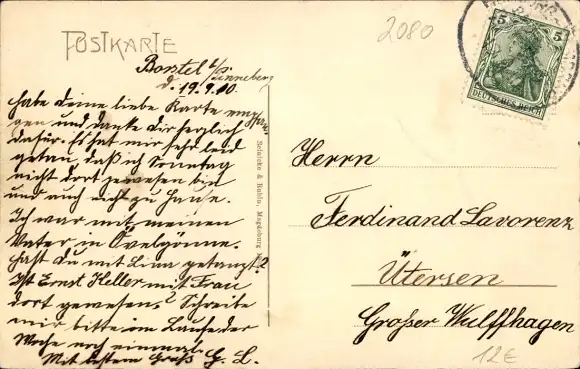 POSTKARTE
2080
5 5
DEUTSCHES REICH
Borstel b/Pinneberg
d. 19.9.10.
habe deine liebe Karte empfan
gen und danke dir herzlich
dafür. Es hat mir sehr leid
getan, daß ich Sonntag
nicht dort gewesen bin
und auch nicht zu Hause.
Ich war mit meinen
Vater in Övelgönne.
Hast du mit Lina getanzt?
Ist Ernst Heller mit Frau
dort gewesen? Schreibe
mir bitte im Laufe der
Woche noch einmal.
Mit bestem Gruß G. L.
Reinicke & Rubin, Magdeburg
Herrn
Ferdinand Lavorenz
Ütersen
Großer Wulffhagen
12E